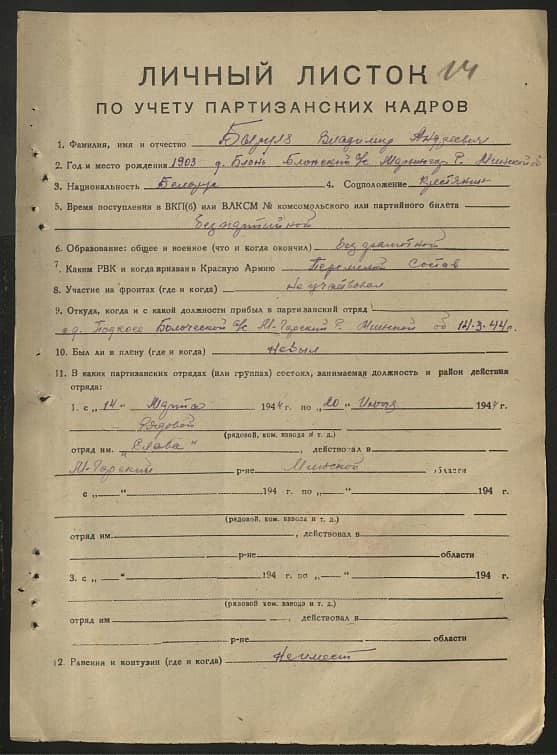 ЛИЧНЫЙ ЛИСТОК 14
ПО УЧЕТУ ПАРТИЗАНСКИХ КАДРОВ
1. Фамилия, имя и отчество Бируля Владимир Андреевич
2. Год и место рождения 1903 д. Блонь Блонский с/с Минской об
3. Национальность Белорус 4. Соцположение Крестьянин
5. Время поступления в ВКП(б) или ВЛКСМ № комсомольского или партийного билета
Безпартийной
6. Образование: общее и военное (что и когда окончил) Безграмотной
7. Каким РВК и когда призван в Красную Армию Переменой Состав
8. Участие на фронтах (где и когда) Не участвовал
9. Откуда, когда и с какой должности прибыл в партизанский отряд
с/с М-Горский Р. Минской об 14-3-44 г.
10. Был ли в плену (где и когда) Небыл
11. В каких партизанских отрядах (или группах) состоял, занимаемая должность и район действия
отряда:
1. с „14" Марта 1944 г. по „20" Июля 1944 г.
Рядовой
(рядовой, ком. взвода и т. д.)
отряд им. „Слава", действовал в
М-Горский р-не Минской области
с „—" 194 г. по „—" 194 г.
(рядовой, ком. взвода и т. д.)
отряд им., действовал в
р-не области
3. с „—" 194 г. по „—" 194 г.
(рядовой ком. взвода и т. д.)
отряд им, действовал в
р-не области
12. Ранения и контузии (где и когда) Неимеет